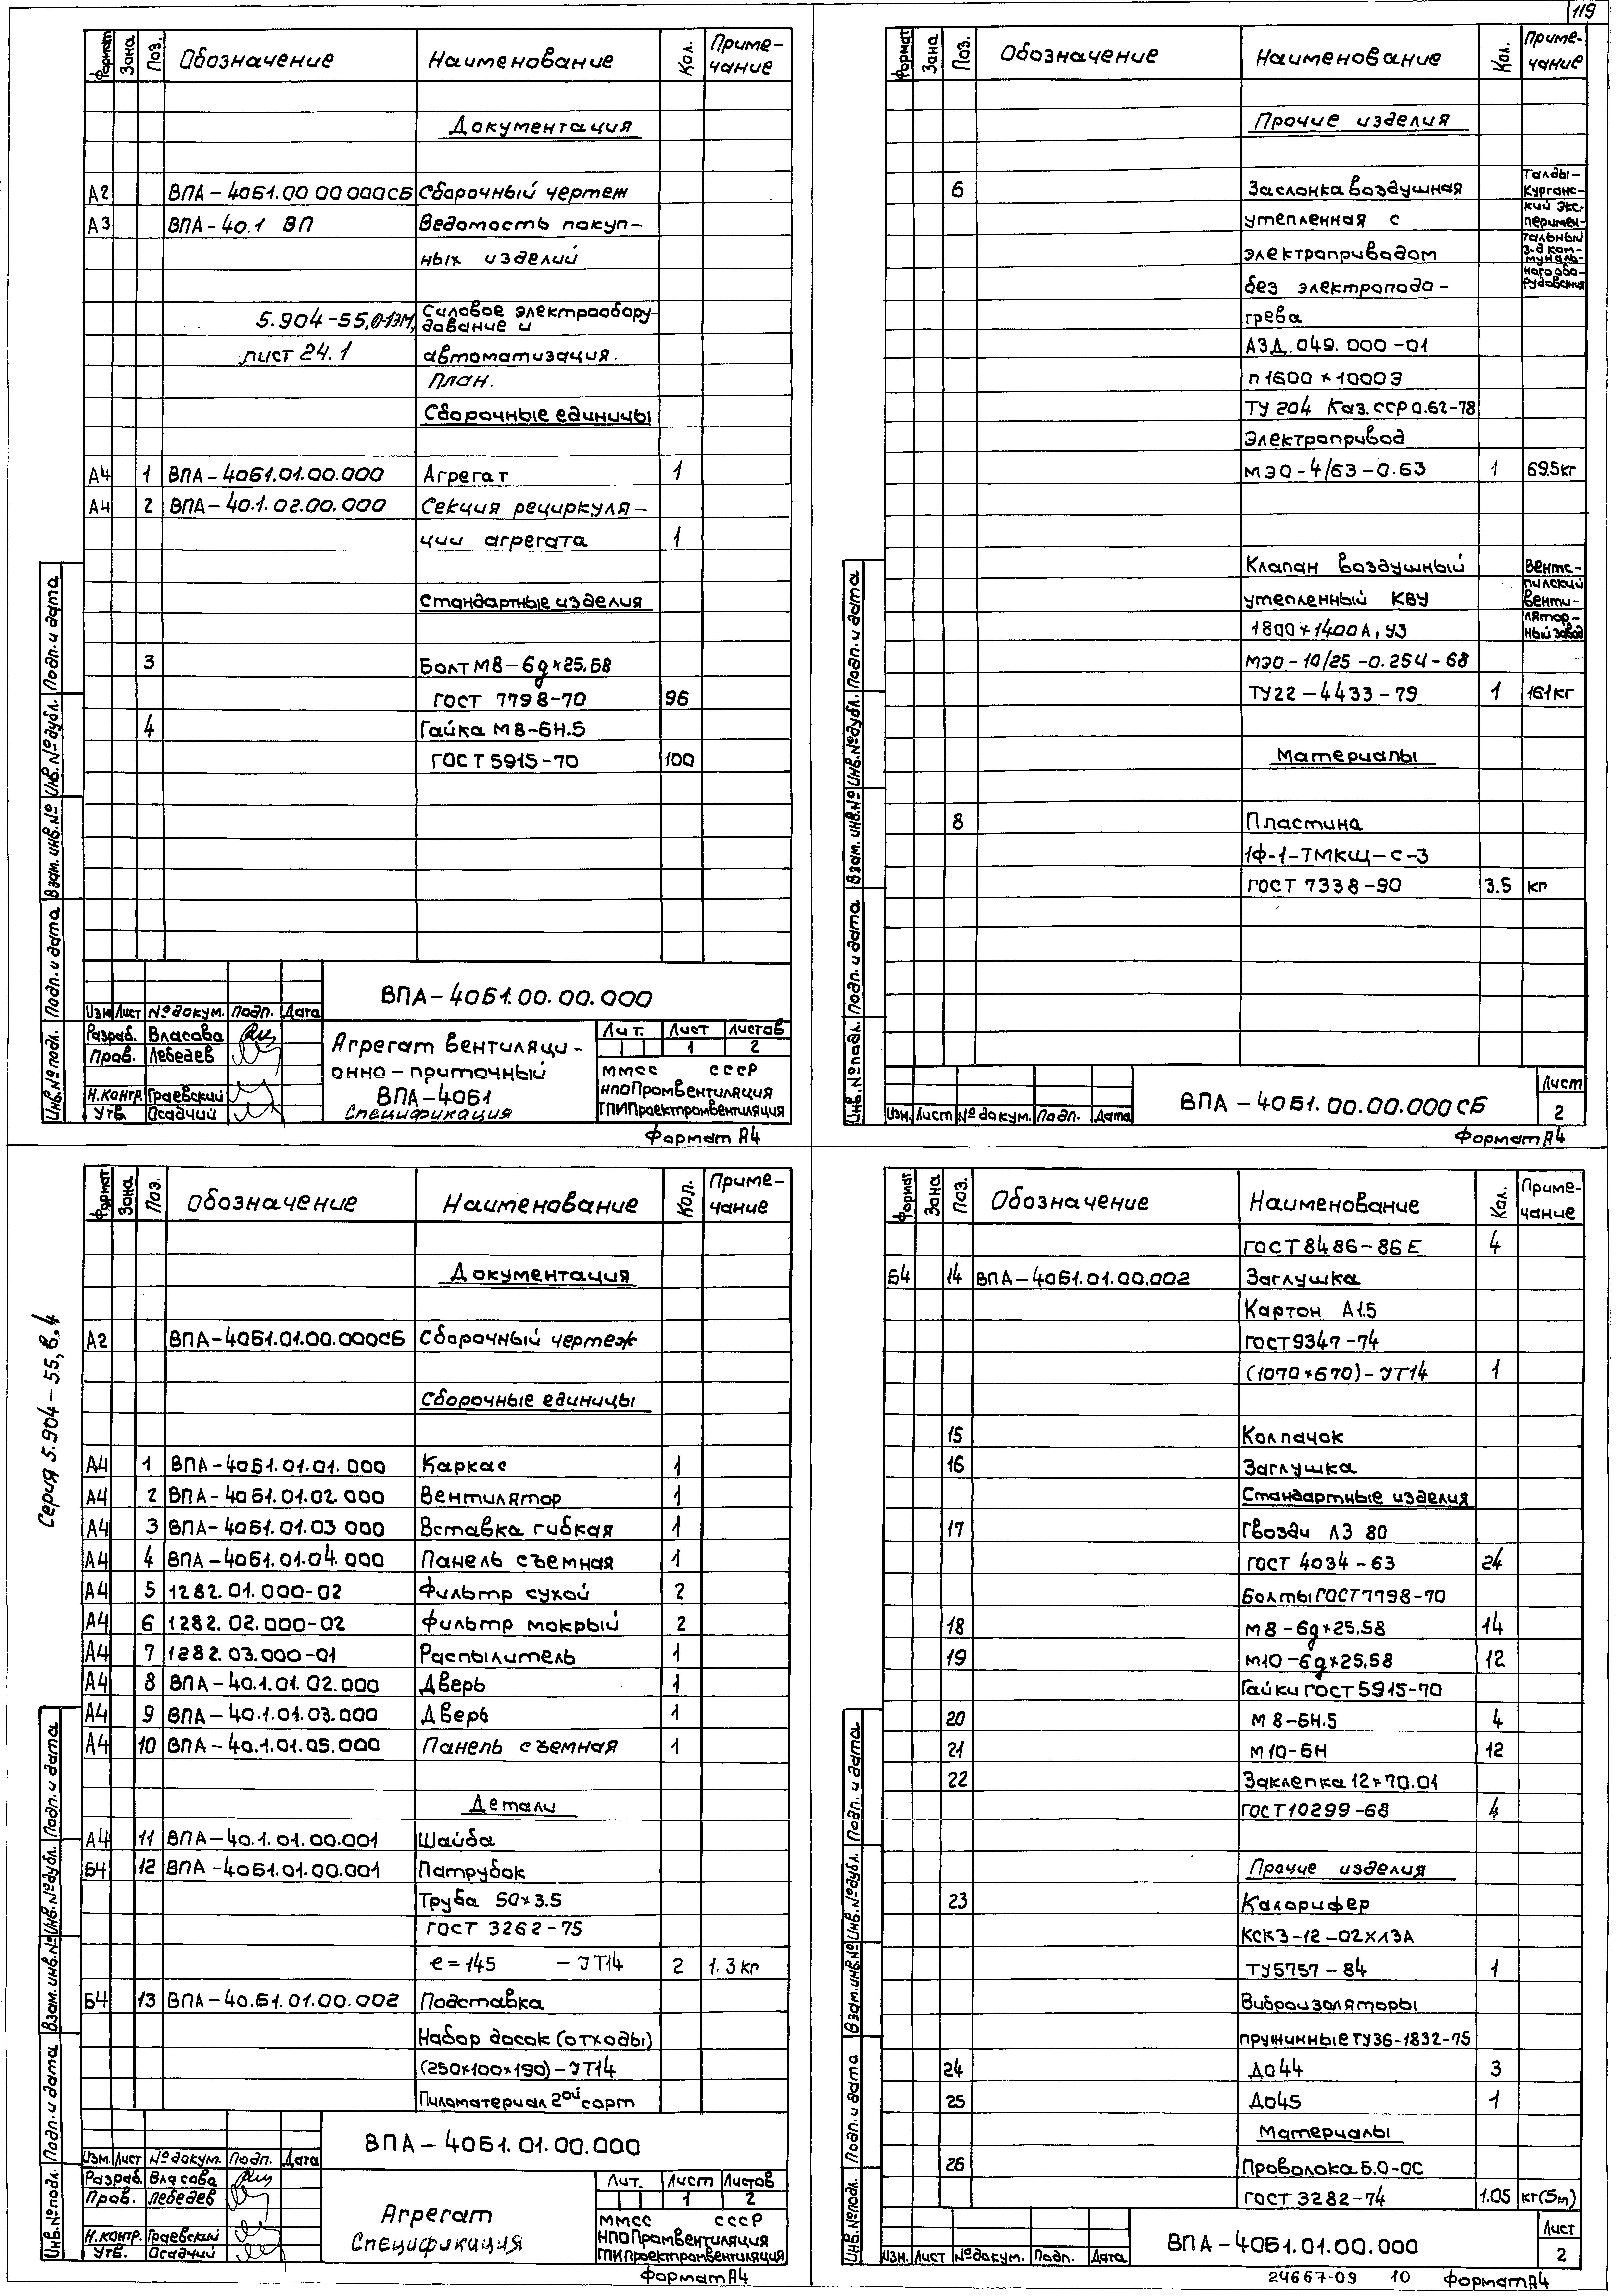 119
Формат Зона Поз. Обозначение Наименование Кол. Приме-
чание
Документация
А2 ВПА-40Б1.00 00 000СБ Сборочный чертеж
А3 ВПА-40.1 ВП Ведомость покуп-
ных изделий
5.904-55,0-13М, Силовое электрообору-
дование и
лист 24.1 автоматизация.
План.
Сборочные единицы
А4 1 ВПА-40Б1.01.00.000 Агрегат 1
А4 2 ВПА-40.1.02.00.000 Секция рециркуля-
ции агрегата 1
Стандартные изделия
3 Болт М8-6g×25.58
ГОСТ 7798-70 96
4 Гайка М8-6Н.5
ГОСТ 5915-70 100
Инв.№подл. Подп. и дата Взам. инв.№ Инв.№дубл. Подп. и дата
Изм Лист №докум. Подп. Дата
Разраб. Власова
Пров. Лебедев
Н.контр. Граевский
Утв. Осадчий
ВПА-40Б1.00.00.000
Агрегат вентиляци-
онно-приточный
ВПА-40Б1
Спецификация
Лит. Лист Листов
1 2
ММСС СССР
НПОПромвентиляция
ГПИПроектпромвентиляция
Формат А4
Формат Зона Поз. Обозначение Наименование Кол. Приме-
чание
Прочие изделия
6 Заслонка воздушная
утепленная с
электроприводом
без электроподо-
грева
АЗД.049.000-01
п 1600×1000Э
ТУ 204 Каз.ССР 0.62-78
Электропривод
МЭО-4/63-0.63 1 69.5кг
Талды-
Курганс-
кий экс-
перимен-
тальный
з-д ком-
муналь-
ного обо-
рудования
Клапан воздушный
утепленный КВУ
1800×1400А, У3
МЭО-10/25-0.25Ч-68
ТУ22-4433-79 1 161кг
Вентс-
пилский
венти-
лятор-
ный завод
Материалы
8 Пластина
1Ф-1-ТМКЩ-С-3
ГОСТ 7338-90 3.5 кг
Инв.№подл. Подп. и дата Взам. инв.№ Инв.№дубл. Подп. и дата
Изм. Лист №докум. Подп. Дата
ВПА-40Б1.00.00.000СБ
Лист
2
Формат А4
Серия 5.904-55, в.4
Формат Зона Поз. Обозначение Наименование Кол. Приме-
чание
Документация
А2 ВПА-40Б1.01.00.000СБ Сборочный чертеж
Сборочные единицы
А4 1 ВПА-40Б1.01.01.000 Каркас 1
А4 2 ВПА-40Б1.01.02.000 Вентилятор 1
А4 3 ВПА-40Б1.01.03 000 Вставка гибкая 1
А4 4 ВПА-40Б1.01.04.000 Панель съемная 1
А4 5 1282.01.000-02 Фильтр сухой 2
А4 6 1282.02.000-02 Фильтр мокрый 2
А4 7 1282.03.000-01 Распылитель 1
А4 8 ВПА-40.1.01.02.000 Дверь 1
А4 9 ВПА-40.1.01.03.000 Дверь 1
А4 10 ВПА-40.1.01.05.000 Панель съемная 1
Детали
А4 11 ВПА-40.1.01.00.001 Шайба
Б4 12 ВПА-40Б1.01.00.001 Патрубок
Труба 50×3.5
ГОСТ 3262-75
e=145 -JT14 2 1.3кг
Б4 13 ВПА-40.Б1.01.00.002 Подставка
Набор досок (отходы)
(250×100×190)-JT14
Пиломатериал 2ой сорт
Инв.№подл. Подп. и дата Взам. инв.№ Инв.№дубл. Подп. и дата
Изм. Лист №докум. Подп. Дата
Разраб. Власова
Пров. Лебедев
Н.контр. Граевский
Утв. Осадчий
ВПА-40Б1.01.00.000
Агрегат
Спецификация
Лит. Лист Листов
1 2
ММСС СССР
НПОПромвентиляция
ГПИПроектпромвентиляция
Формат А4
Формат Зона Поз. Обозначение Наименование Кол. Приме-
чание
ГОСТ 8486-86Е 4
Б4 14 ВПА-40Б1.01.00.002 Заглушка
Картон А1.5
ГОСТ9347-74
(1070×670)-JT14 1
15 Колпачок
16 Заглушка
Стандартные изделия
17 Гвозди Л3 80
ГОСТ 4034-63 24
Болты ГОСТ7798-70
18 М8-6g×25.58 14
19 М10-6g×25.58 12
Гайки ГОСТ 5915-70
20 М8-6Н.5 4
21 М10-6Н 12
22 Заклепка 12×70.01
ГОСТ10299-68 4
Прочие изделия
23 Калорифер
КСК3-12-02ХЛ3А
ТУ5757-84 1
Виброизоляторы
пружинные ТУ36-1832-75
24 До44 3
25 До45 1
Материалы
26 Проволока 6.0-ОС
ГОСТ 3282-74 1.05 кг(5м)
Инв.№подл. Подп. и дата Взам.инв.№ Инв.№дубл. Подп. и дата
Изм. Лист №докум. Подп. Дата
ВПА-40Б1.01.00.000
Лист
2
24667-09 10 Формат А4